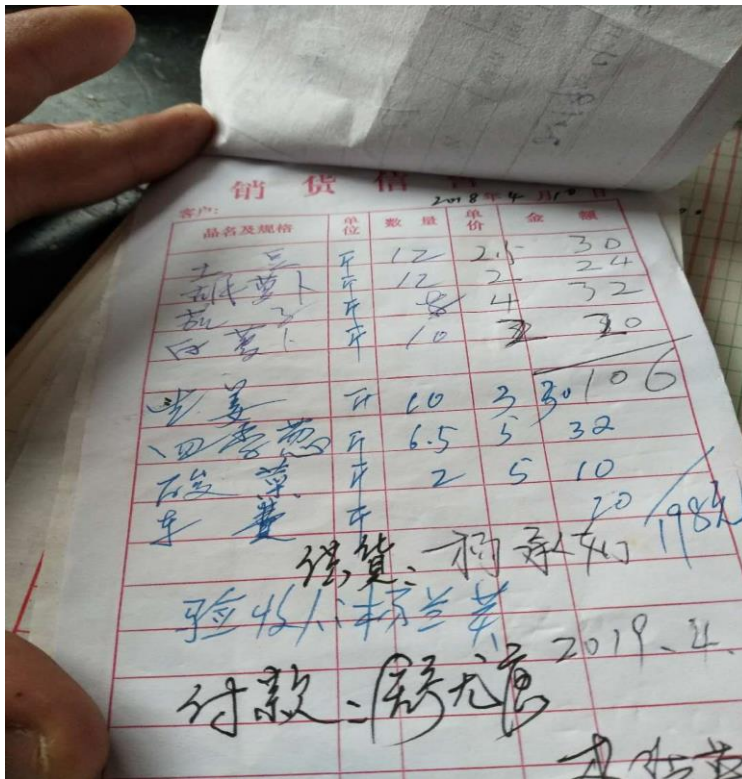 销货信
2018年4月10日
客户:
品名及规格 单位 数量 单价 金额
土豆 斤 12 2.5 30
胡萝卜 斤 12 2 24
茄子 斤 8 4 32
白萝卜 斤 10 2 20
106
生姜 斤 10 3 30
四季葱 斤 6.5 5 32
酸菜 斤 2 5 10
车费 斤 20
198元
供货:柯
验收人:
2019.4.
付款: